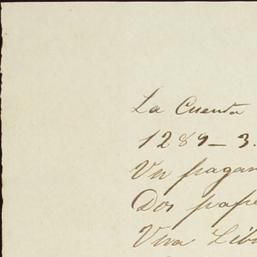 La Cuenta
1289-3.
Un pagar
Dos pape
Una Lib